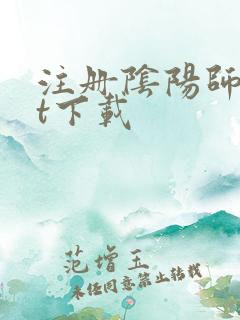 注册陰陽師
t下載
范增玉
未经同意禁止转载